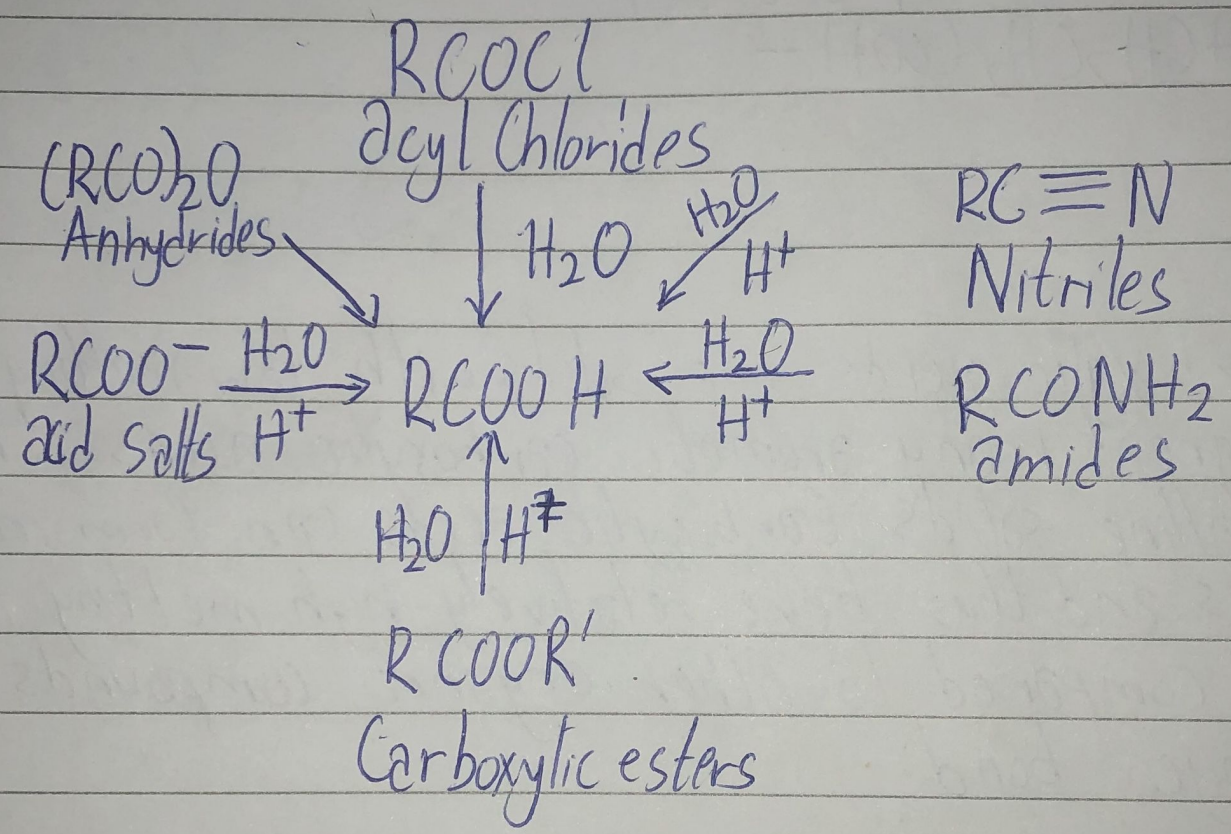 RCOCl
acyl Chlorides
(RCO)₂O
Anhydrides
H₂O
H₂O
H⁺
RC≡N
Nitriles
RCOO⁻
acid salts
H₂O
H⁺
RCOOH
H₂O
H⁺
RCONH₂
amides
H₂O
H⁺
RCOOR'
Carboxylic esters